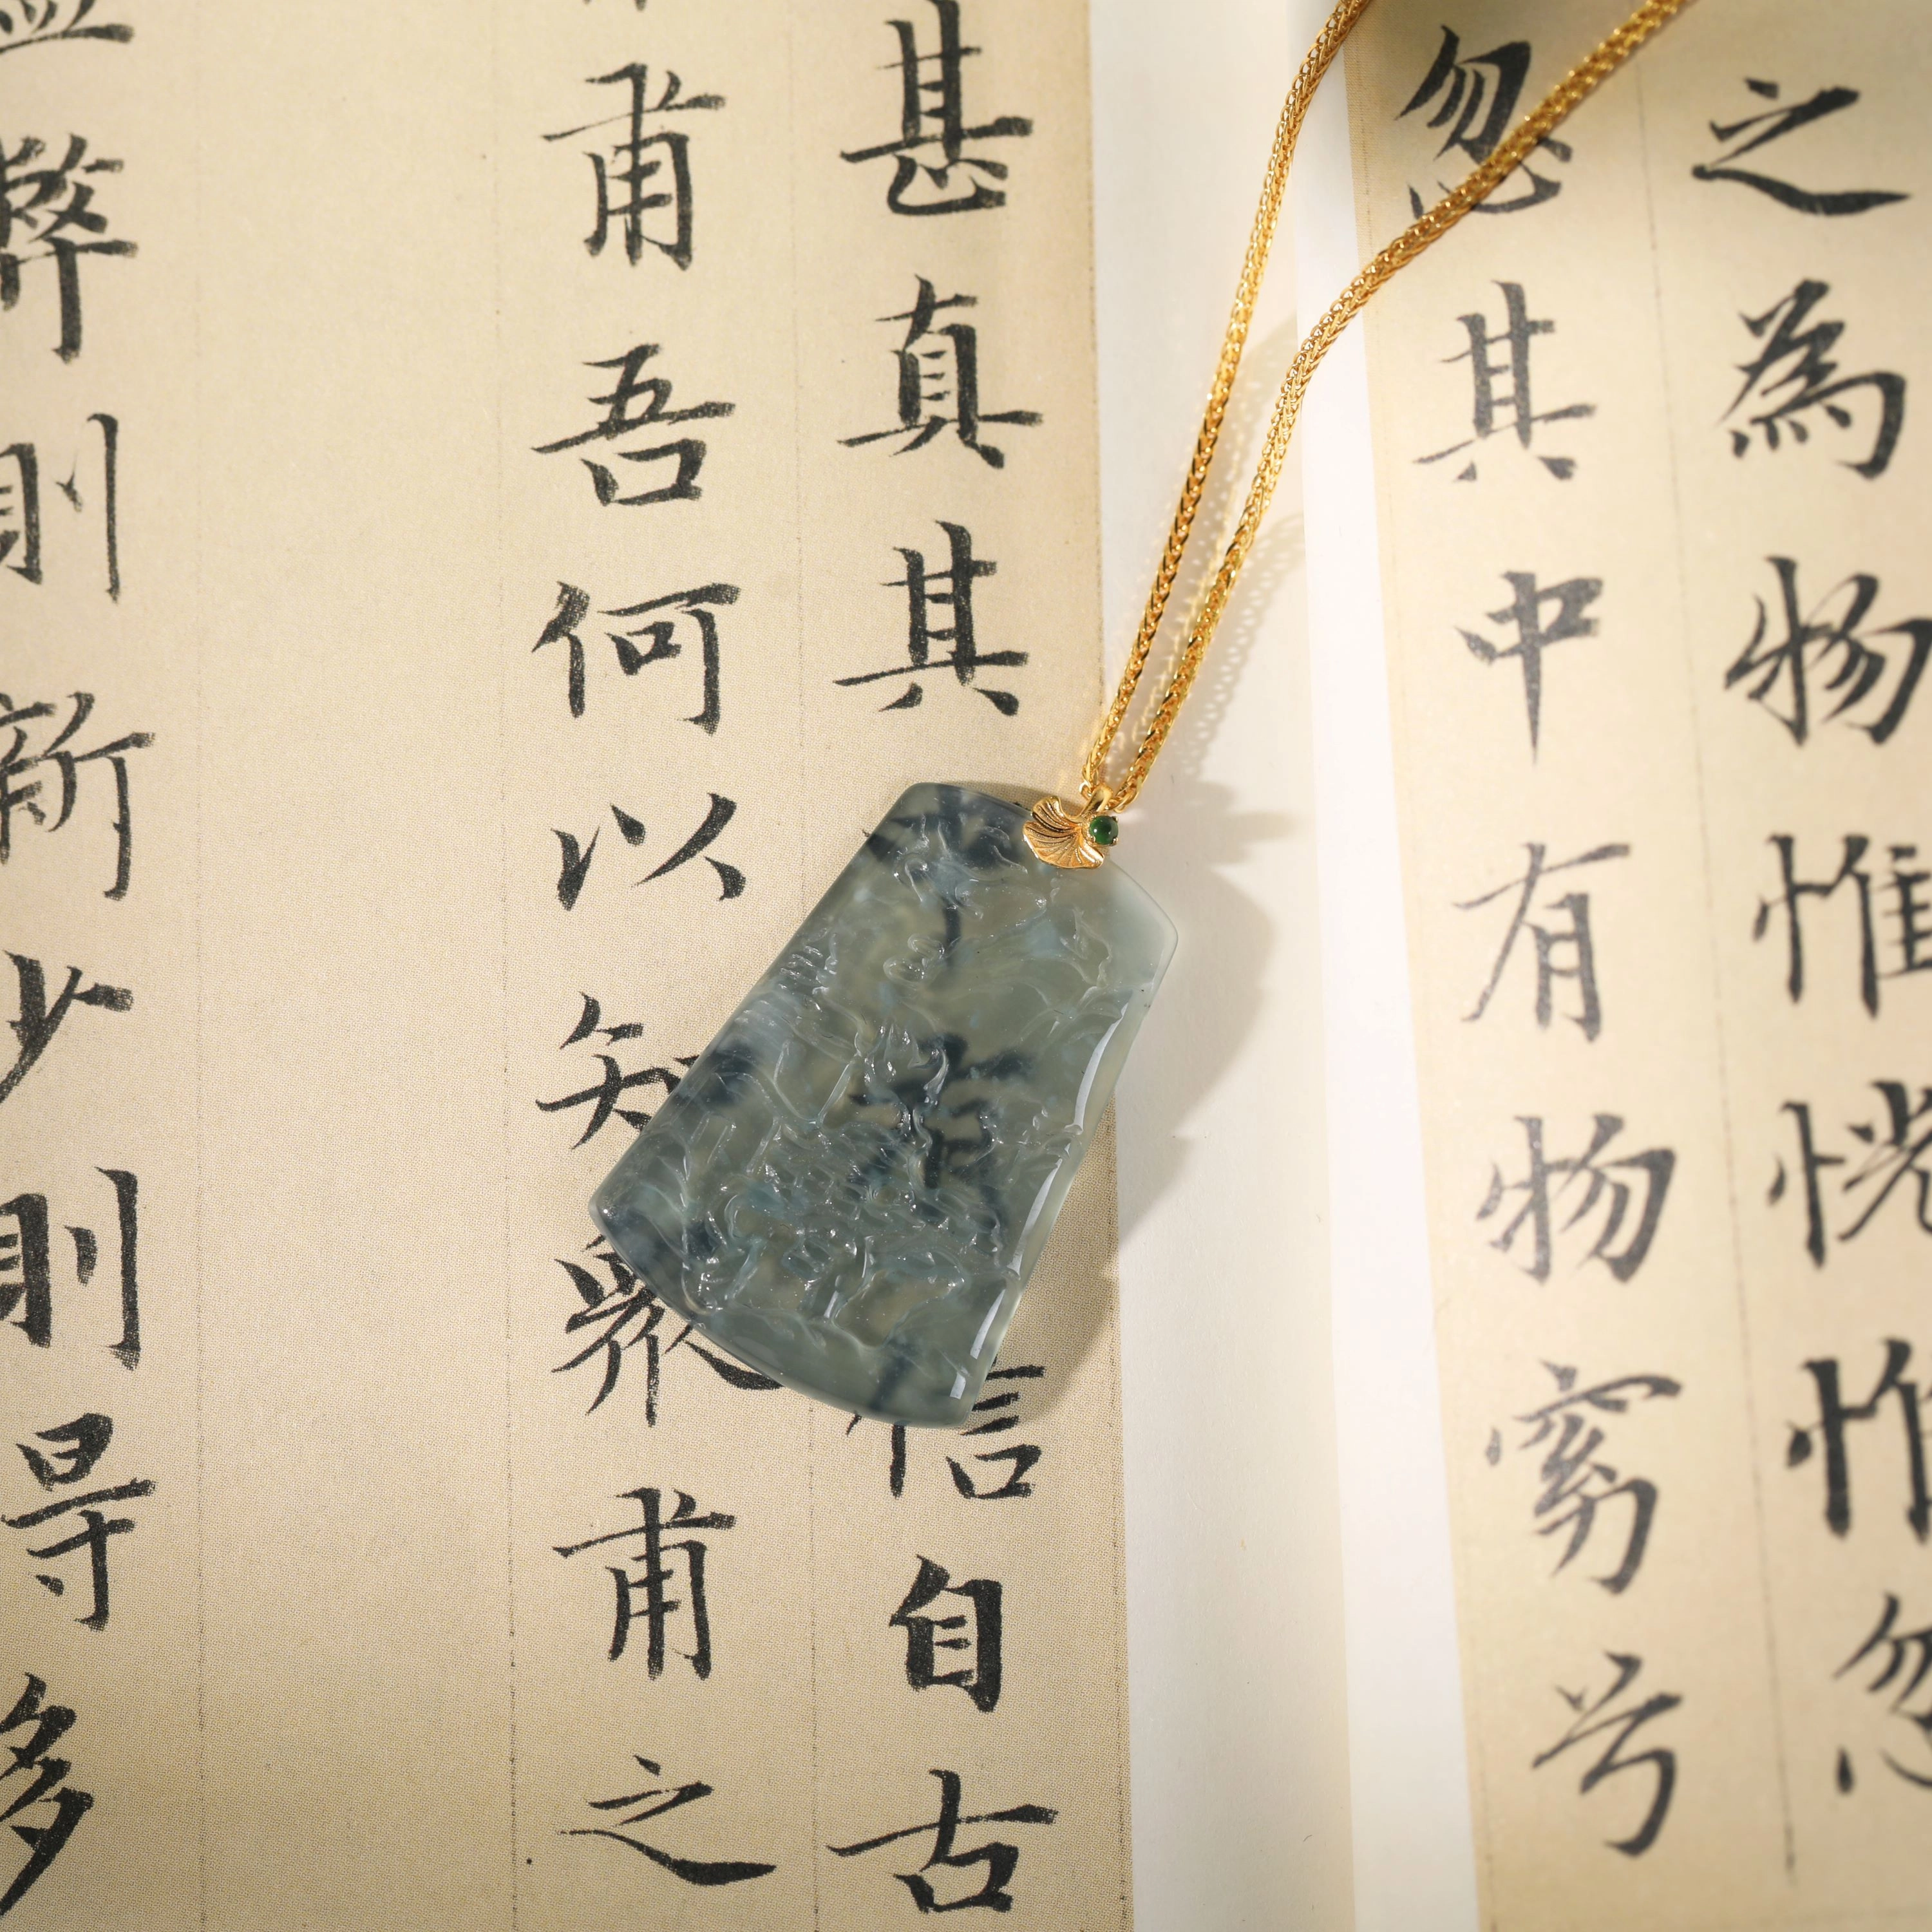 之為物惟恍惟忽
忽其中有物窈兮
甚真其信自古
甫吾何以知衆甫之
弊則新少則得多